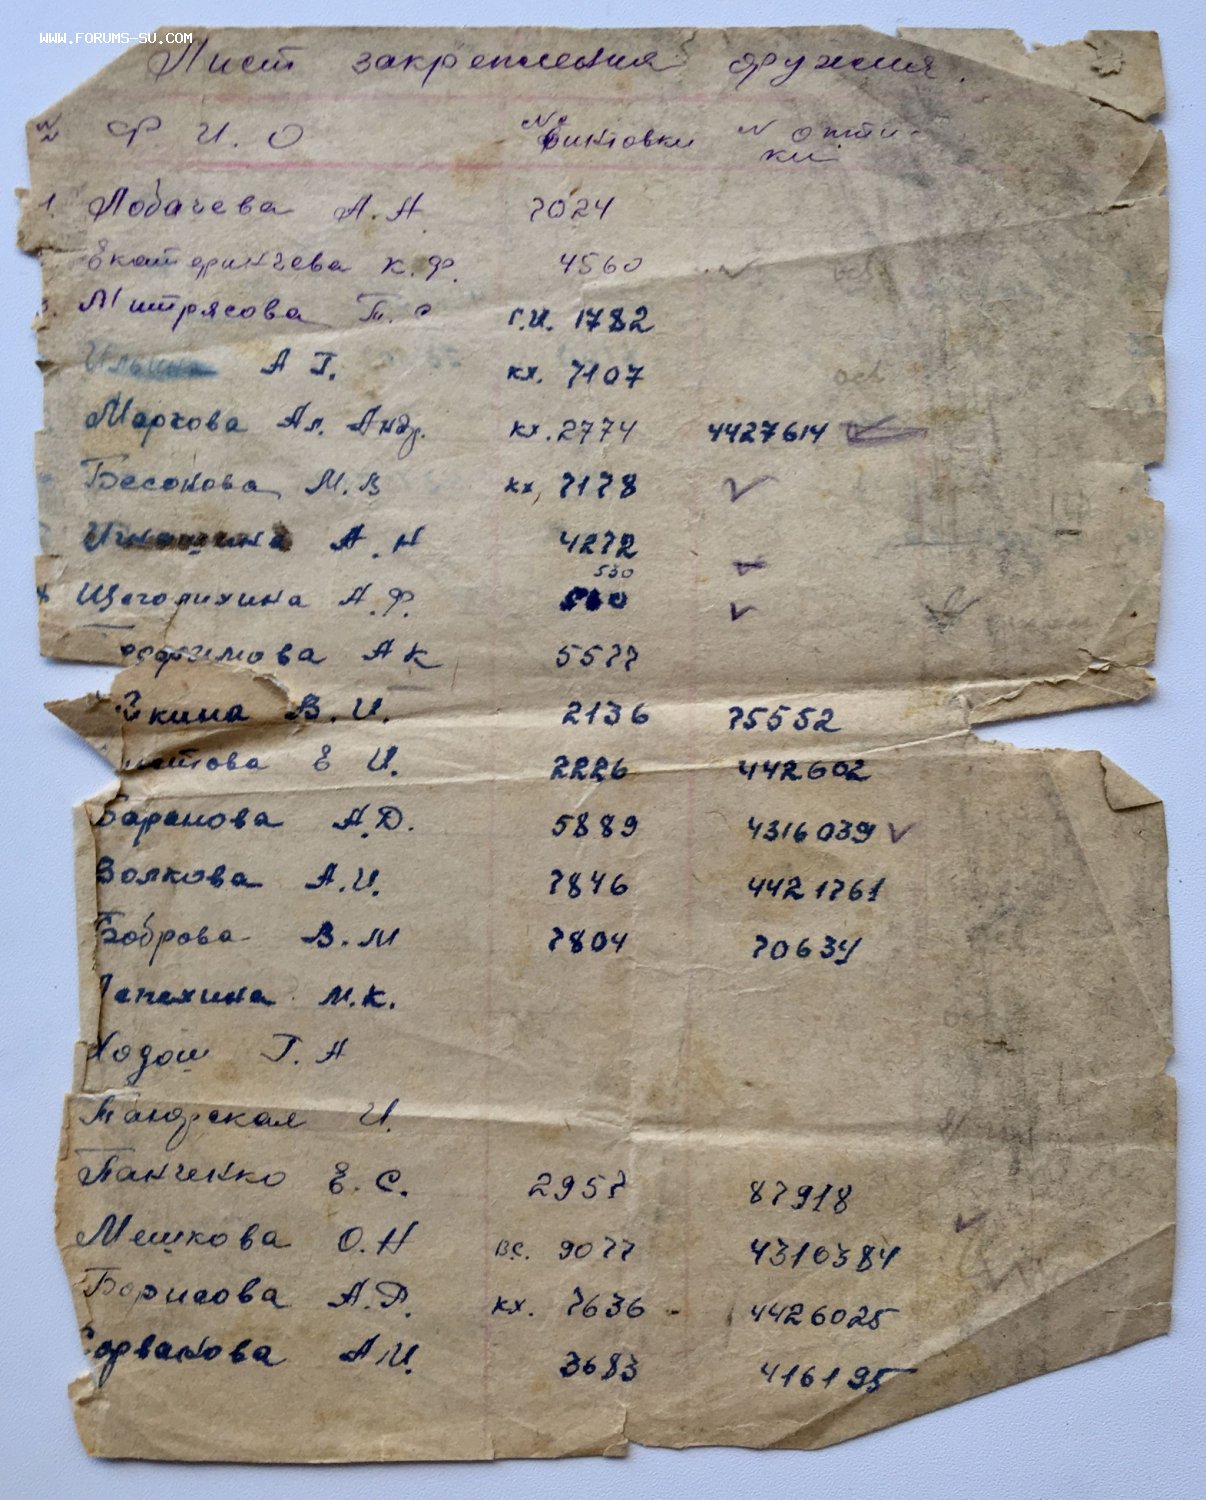 WWW.FORUMS-SU.COM
Лист закрепления оружия.
№ Ф И. О № винтовки № оптики
1. Лобачева А. А 7024
Екатеринчева К. Ф. 4560
3. Митрясова Т. С г.и. 1782
Ильина А Г. кх. 7107
Маркова Ал. Андр. кх. 2774 4427614
Бесонова М. В кх, 7178
А. Н 4272
530
Щеголихина А. Ф.
Трофимова А К 5577
В. И. 2136 75552
Е И. 2226 442602
Баранова А. Д. 5889 4316039
Волкова А. И. 7846 4421761
Боброва В. М 7804 70634
Лепехина М. К.
Ходош Г. А
И.
Панченко Е. С. 2957 87918
Мешкова О. Н вс. 9077 4310384
Борисова А. Г. кх. 7636 4426025
А. И. 3683 416195